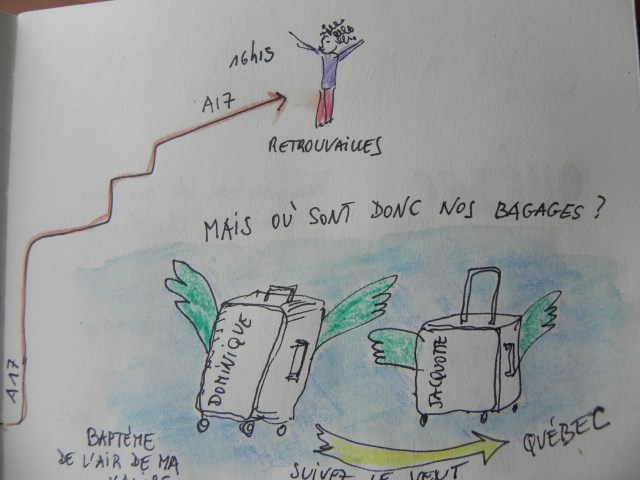 16h15
A17
RETROUVAILLES
MAIS OÙ SONT DONC NOS BAGAGES ?
A17
DOMINIQUE
JACQUOTTE
BAPTÊME
DE L'AIR DE MA
VALISE
SUIVEZ LE VENT
QUÉBEC